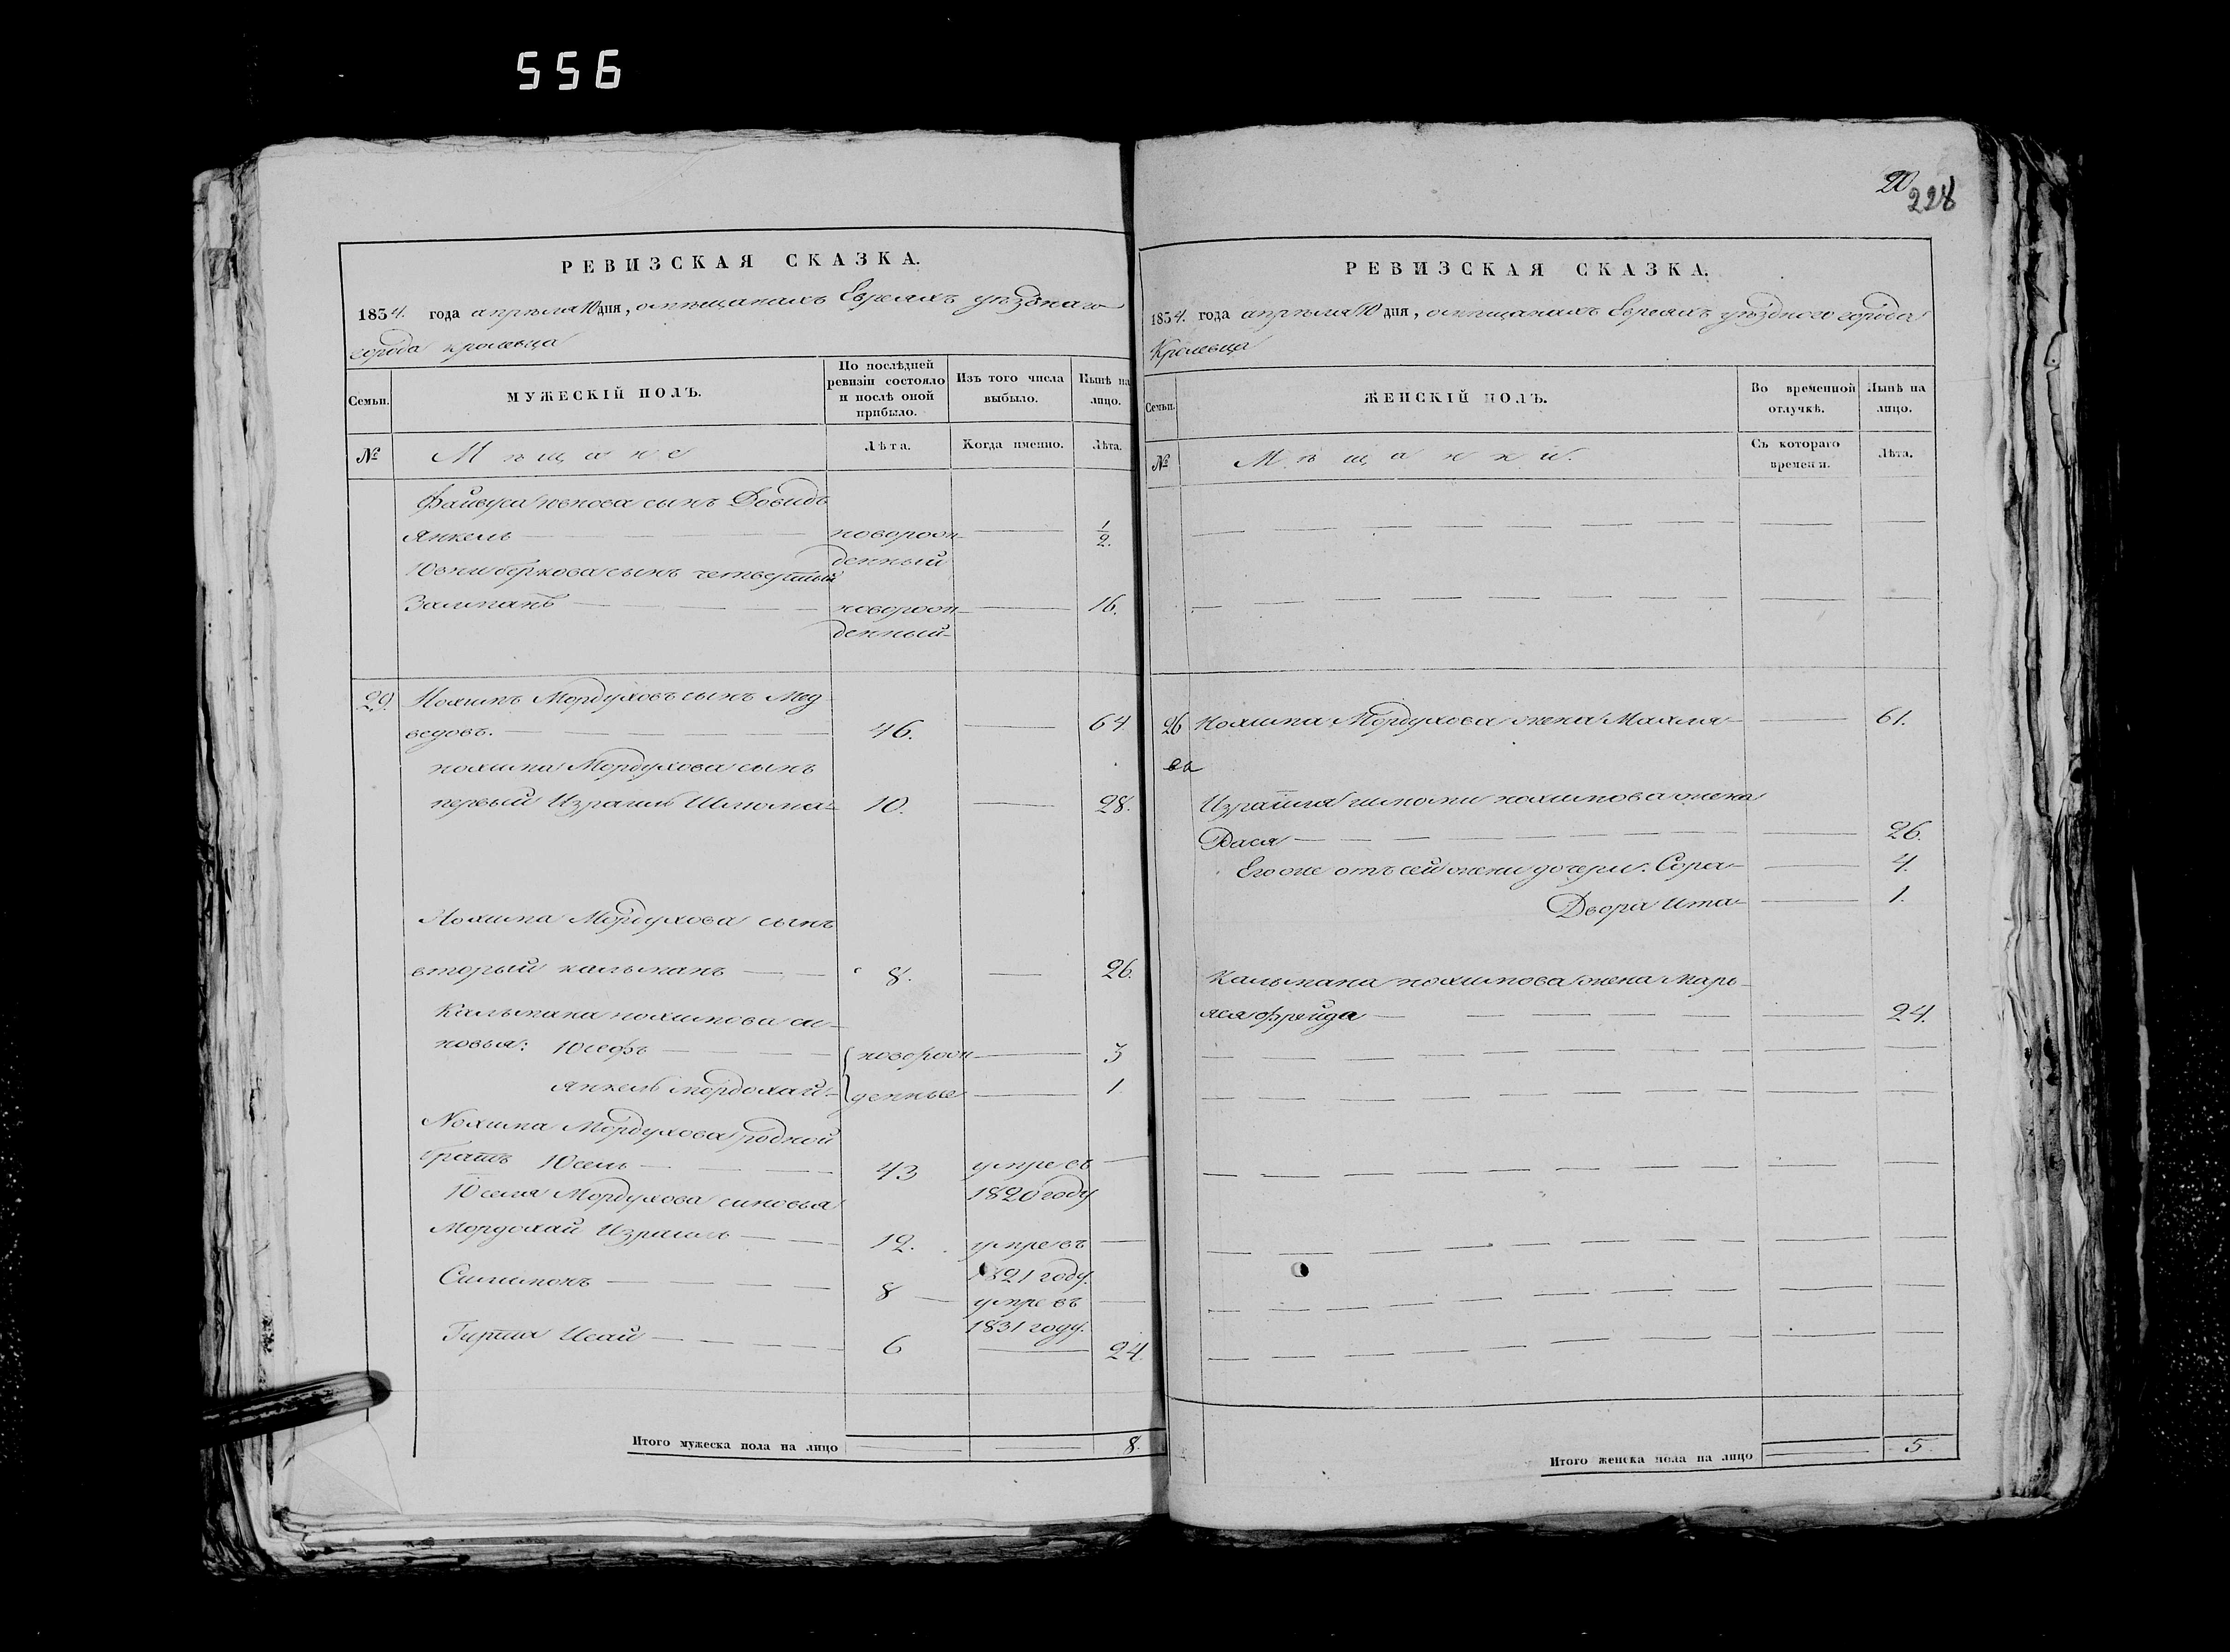 556
20
228
РЕВИЗСКАЯ СКАЗКА.
1834. года апреля 10 дня, о мещанахъ Евреяхъ уезднаго
города кролевца
Семьи.
МУЖЕСКІЙ ПОЛЪ.
По послѣдней ревизіи состояло и послѣ оной прибыло.
Изъ того числа выбыло.
Нынѣ на лицо.
№
Мѣщане
Лѣта.
Когда именно.
Лѣта.
сынъ Довидъ
Янкель новорож- 1/2.
денный
беркова сынъ четвертый
Залманъ новорож- 16.
денный
29. Нохимъ Мордуховъ сынъ Мед
ведовъ. 46. 64
нохима Мордухова сынъ
первый Израиль Шлюма 10. 28.
Нохима Мордухова сынъ
вторый кальманъ 8. 26.
Кальмана нохимова си-
новья: Юсефъ новорож 3
Янкель мордохай денные 1
Нохима Мордухова родной
братъ Юсель 43 умре въ
1820 году
Юселя Мордухова синовья
Мордохай Израиль 12. умре въ
1821 году.
Симимонъ 8 умре въ
1831 году.
Гирша Исай 6 24.
Итого мужеска пола на лицо 8.
РЕВИЗСКАЯ СКАЗКА.
1834. года апреля 10 дня, о мещанахъ Евреяхъ уездного города
Кролевца
Семьи.
ЖЕНСКІЙ ПОЛЪ.
Во временной отлучкѣ.
Нынѣ на лицо.
№
Мѣщанки.
Съ котораго времени.
Лѣта.
26 Нохима Мордухова жена Махля 61.
Израиля шлюми нохимова жена
Дася 26.
Его же отъ сей жени дочери: Сора 4.
Двора Ита 1.
Кальмана нохимова жена Марь
яся фрейда 24.
Итого женска пола на лицо 5.